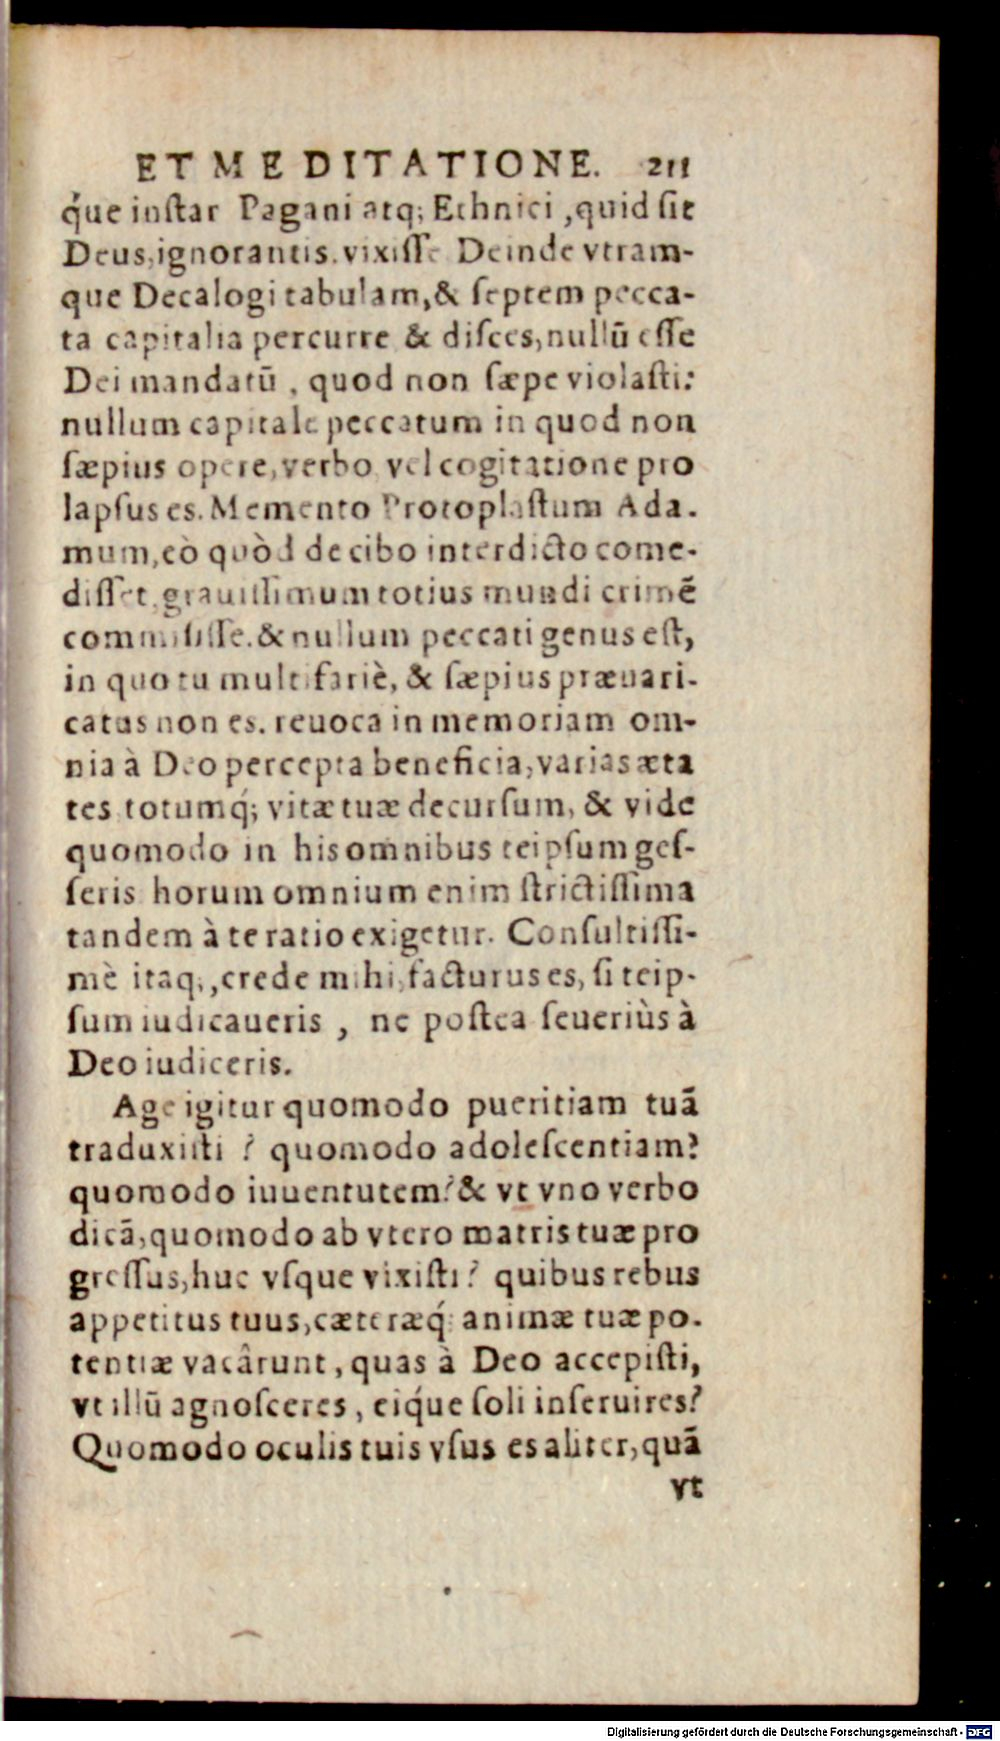 ET MEDITATIONE. 211
q́ue inſtar Pagani atq; Ethnici, quid ſit
Deus, ignorantis. vixiſſe Deinde vtram-
que Decalogi tabulam, & ſeptem pecca-
ta capitalia percurre & diſces, nullū eſſe
Dei mandatū, quod non ſæpe violaſti:
nullum capitale peccatum in quod non
ſæpius opere, verbo vel cogitatione pro
lapſus es. Memento Protoplaſtum Ada-
mum, eò quòd de cibo interdicto come-
diſſet, grauiſſimum totius mundi crimē
commiſiſſe. & nullum peccati genus eſt,
in quo tu multifariè, & ſæpius præuari-
catus non es. reuoca in memoriam om-
nia à Deo percepta beneficia, varias æta
tes totumq́; vitæ tuæ decurſum, & vide
quomodo in his omnibus teipſum geſ-
ſeris horum omnium enim ſtrictiſſima
tandem à te ratio exigetur. Conſultiſſi-
mè itaq;, crede mihi, facturus es, ſi teip-
ſum iudicaueris, ne poſtea ſeueriùs à
Deo iudiceris.
Age igitur quomodo pueritiam tuā
traduxiſti? quomodo adoleſcentiam?
quomodo iuuentutem? & vt vno verbo
dicā, quomodo ab vtero matris tuæ pro
greſſus, huc vſque vixiſti? quibus rebus
appetitus tuus, cæteræq́; animæ tuæ po-
tentiæ vacârunt, quas à Deo accepiſti,
vt illū agnoſceres, eiq́ue ſoli inſeruires?
Quomodo oculis tuis vſus es aliter, quā
vt
Digitalisierung gefördert durch die Deutsche Forschungsgemeinschaft - DFG